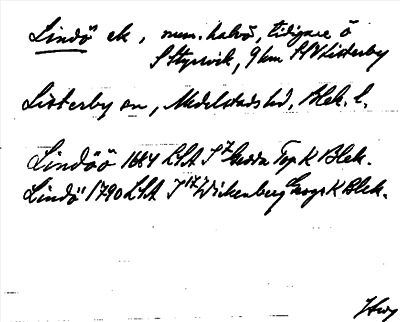 Lindö ek, num. halvö, tidigare ö
S Styrsvik, 9 km SSV Listerby
Listerby sn, Medelstads hd, Blek. l.
Lindöö 1684 LSA Top K Blek.
Lindö 1790 LSA Wickenberg Geogr K Blek.